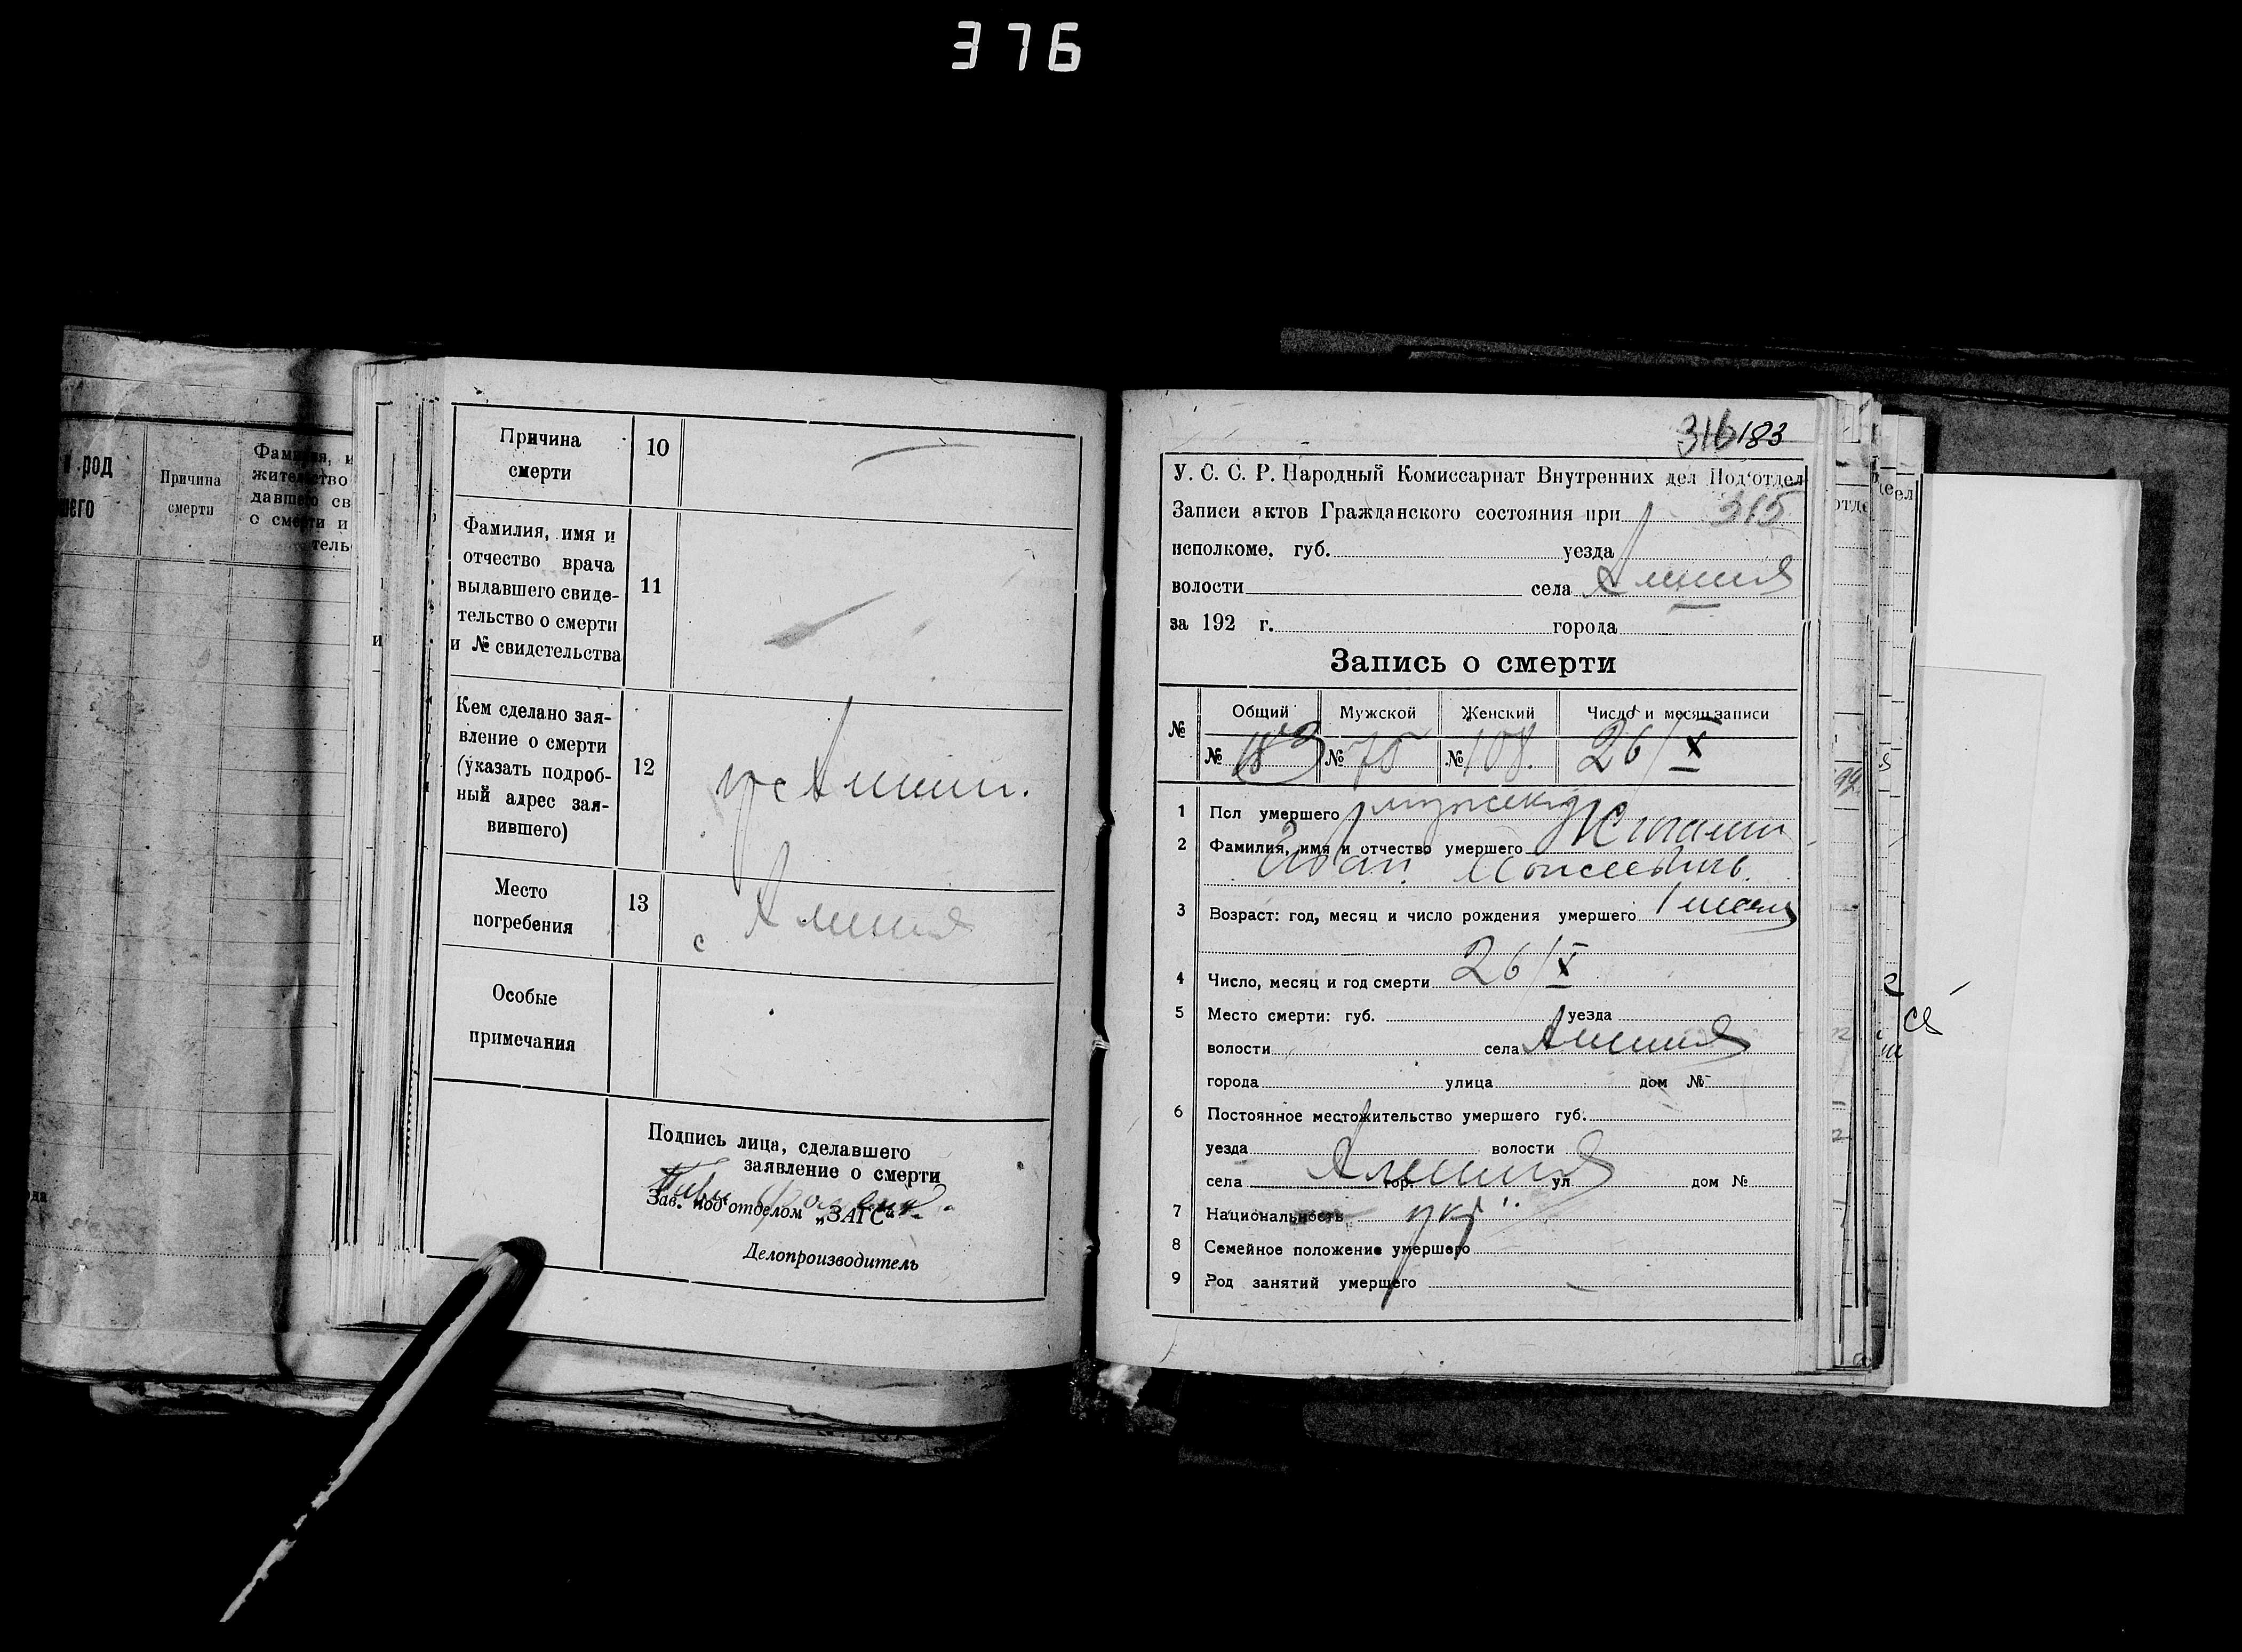 376
род
шего
Причина
смерти
Фамилия, и
жительство
давшего св
о смерти и
тель
и
Причина
смерти
10
Фамилия, имя и
отчество врача
выдавшего свиде-
тельство о смерти
и № свидетельства
11
Кем сделано зая-
вление о смерти
(указать подроб-
ный адрес зая-
вившего)
12
Место
погребения
13
с
Особые
примечания
Подпись лица, сделавшего
заявление о смерти
Зав. под'отделом „ЗАГС"
Делопроизводитель
316 183
У. С. С. Р. Народный Комиссариат Внутренних дел Под'отдел
Записи актов Гражданского состояния при 315
исполкоме, губ. уезда
волости села
за 192 г. города
Запись о смерти
№ Общий Мужской Женский Число и месяц записи
№ 183 № 75 № 108. 26/X
1 Пол умершего мужской
2 Фамилия, имя и отчество умершего
Иван Моисеевичь.
3 Возраст: год, месяц и число рождения умершего 1 месяц
4 Число, месяц и год смерти 26/X
5 Место смерти: губ. уезда
волости села
города улица дом №
6 Постоянное местожительство умершего губ.
уезда волости
села гор. ул дом №
7 Национальность укр
8 Семейное положение умершего
9 Род занятий умершего